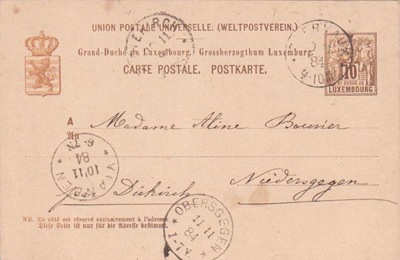 UNION POSTALE UNIVERSELLE. (WELTPOSTVEREIN.)
Grand-Duché de Luxembourg. / Grossherzogthum Luxemburg.
CARTE POSTALE. POSTKARTE.
10
LUXEMBOURG
84
9-10
A
An
Madame Aline Bouvier
Niedersgegen
par Diekirch
VIANDEN
10/11
84
OBERSGEGEN
11 11
84
NB. Ce côté est réservé exclusivement à l'adresse.
Diese Seite ist nur für die Adresse bestimmt.